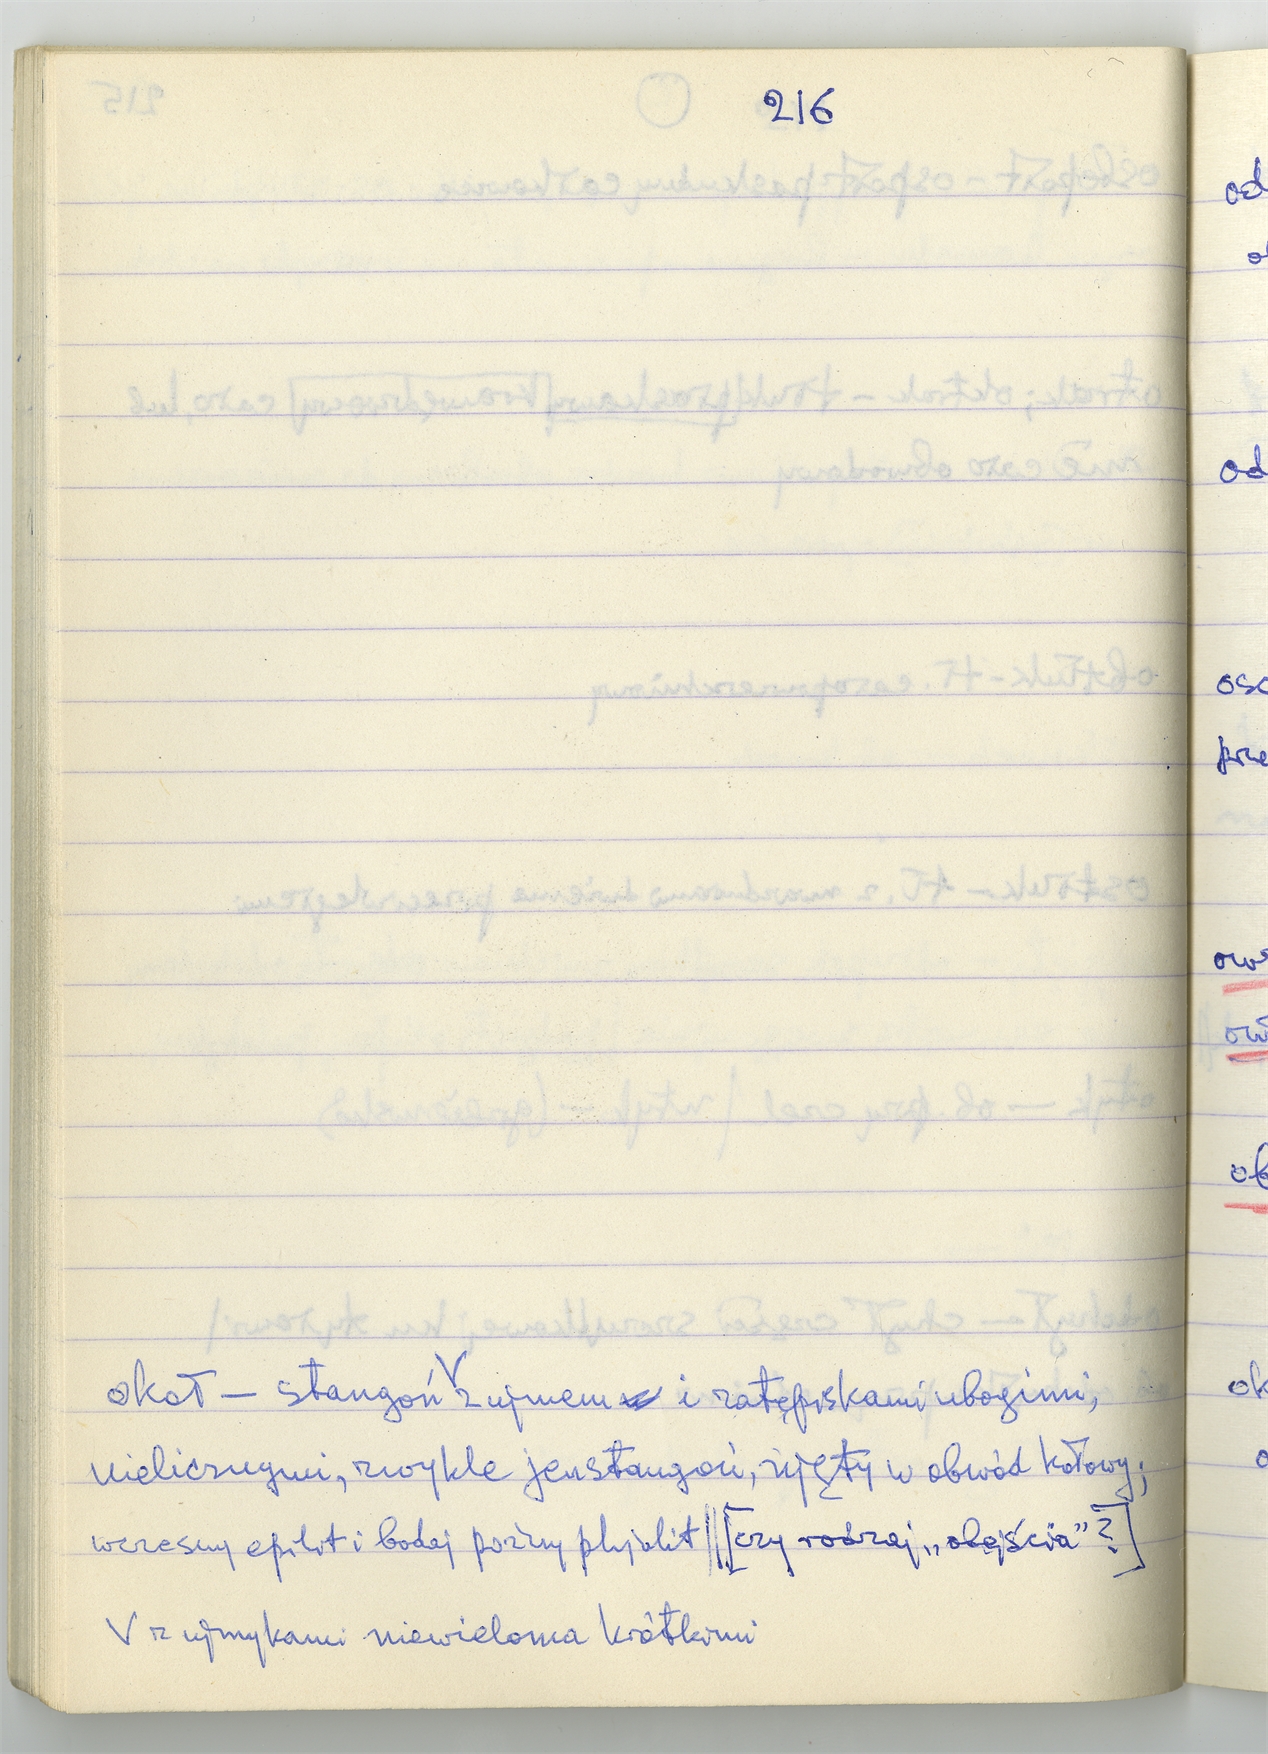 216
okoł — stangoń V z ujmem i zatępiskami ubogimi,
nielicznymi, zwykle jenstangoń, ujęty w obwód kołowy;
wczesny epilit i bodaj późny plyolit || [czy rodzaj „obejścia” ?]
V z ujmykami niewieloma krótkimi
od
od
oso
prze
ob
ok